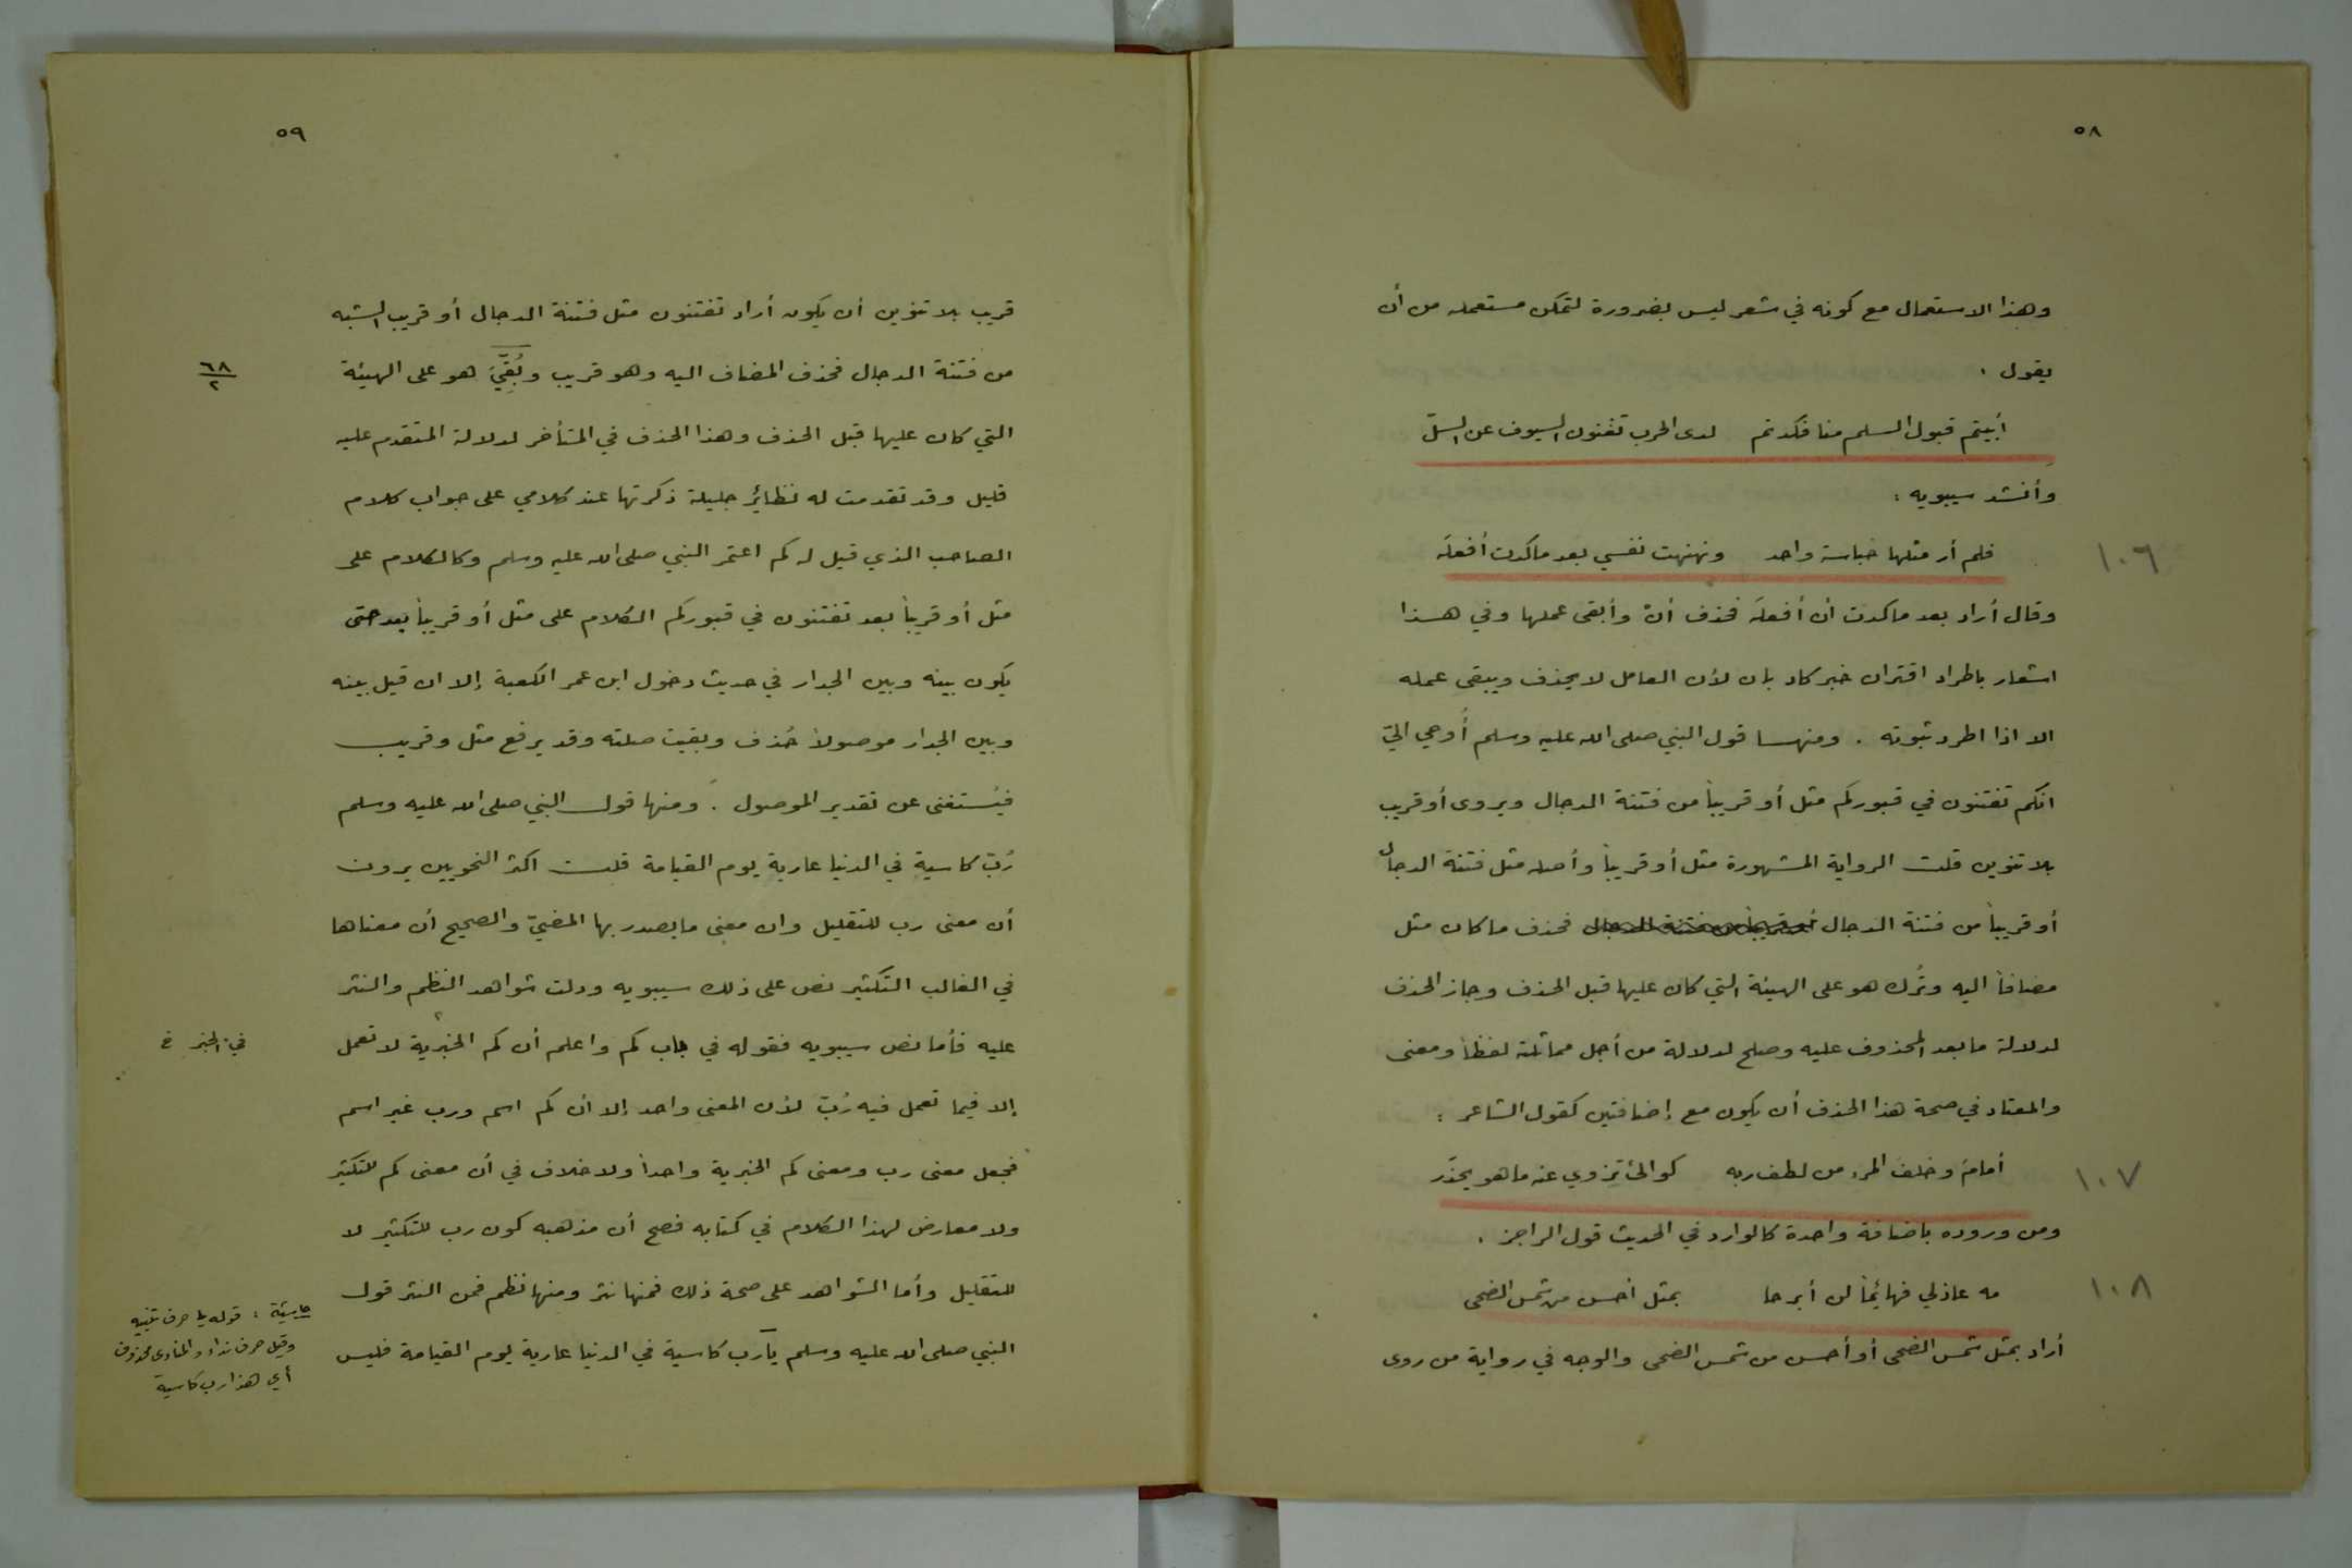 ٥٨
وهذا الاستعمال مع كونه في شعر ليس بضرورة لتمكن مستعمله من أن
يقول .
أبيتم قبول السلم منا فكدتم لدى الحرب تغنون السيوف عن السلّ
وأنشد سيبويه :
١٠٦
فلم أر مثلها خباسة واحد ونهنهت نفسي بعد ما كدت أفعلَه
وقال أراد بعد ما كدت أن أفعلَه فحذف أنْ وأبقى عملها وفي هذا
اشعار باطراد اقتران خبر كاد بان لأن العامل لا يحذف ويبقى عمله
الا اذا اطرد ثبوته . ومنها قول النبي صلى الله عليه وسلم أُوحي اليّ
انكم تفتنون في قبوركم مثل أو قريباً من فتنة الدجال ويروى أو قريب
بلا تنوين قلت الرواية المشهورة مثل أو قريباً وأصله مثل فتنة الدجال
أو قريباً من فتنة الدجال أو قريباً من فتنة الدجال فحذف ما كان مثل
مضافاً اليه وتُرك هو على الهيئة التي كان عليها قبل الحذف وجاز الحذف
لدلالة ما بعد المحذوف عليه وصلح لدلالة من أجل مماثلته لفظاً ومعنى
والمعتاد في صحة هذا الحذف أن يكون مع إضافتين كقول الشاعر :
١٠٧
أمامَ وخلفَ المرء من لطف ربه كوالئ تزوي عنه ما هو يحذّر
ومن وروده باضافة واحدة كالوارد في الحديث قول الراجز .
١٠٨
مه عاذلي فهائماً لن أبرحا بمثل أحسن من شمس الضحى
أراد بمثل شمس الضحى أو أحسن من شمس الضحى والوجه في رواية من روى
٥٩
قريب بلا تنوين أن يكون أراد تفتنون مثل فتنة الدجال أو قريب الشبه
من فتنة الدجال فحذف المضاف اليه وهو قريب وبُقّيَ هو على الهيئة
٦٨
٢
التي كان عليها قبل الحذف وهذا الحذف في المتأخر لدلالة المتقدم عليه
قليل وقد تقدمت له نظائر جليلة ذكرتها عند كلامي على جواب كلام
الصاحب الذي قيل له كم اعتمر النبي صلى الله عليه وسلم وكالكلام على
مثل أو قريباً بعد تفتنون في قبوركم الكلام على مثل أو قريباً بعد حتى
يكون بينه وبين الجدار في حديث دخول ابن عمر الكعبة إلا ان قبل بينه
وبين الجدار موصولاً حُذف وبقيت صلته وقد يرفع مثل وقريب
فيُستغنى عن تقدير الموصول . ومنها قول النبي صلى الله عليه وسلم
رُبّ كاسية في الدنيا عارية يوم القيامة قلت اكثر النحويين يرون
أن معنى رب للتقليل وان معنى ما يصدر بها المضيّ والصحيح أن معناها
في الغالب التكثير نص على ذلك سيبويه ودلت شواهد النظم والنثر
عليه فأما نص سيبويه فقوله في باب كم واعلم أن كم الخبرية لا تعمل
في الخبر خ
إلا فيما تعمل فيه رُبّ لأن المعنى واحد إلا أن كم اسم ورب غير اسم
فجعل معنى رب ومعنى كم الخبرية واحداً ولا خلاف في أن معنى كم للتكثير
ولا معارض لهذا الكلام في كتابه فصح أن مذهبه كون رب للتكثير لا
للتقليل وأما الشواهد على صحة ذلك فمنها نثر ومنها نظم فمن النثر قول
النبي صلى الله عليه وسلم يا رب كاسية في الدنيا عارية يوم القيامة فليس
حاشية : قوله يا حرف تنبيه
وقيل حرف نداء والمنادى محذوف
أي هذا رب كاسية